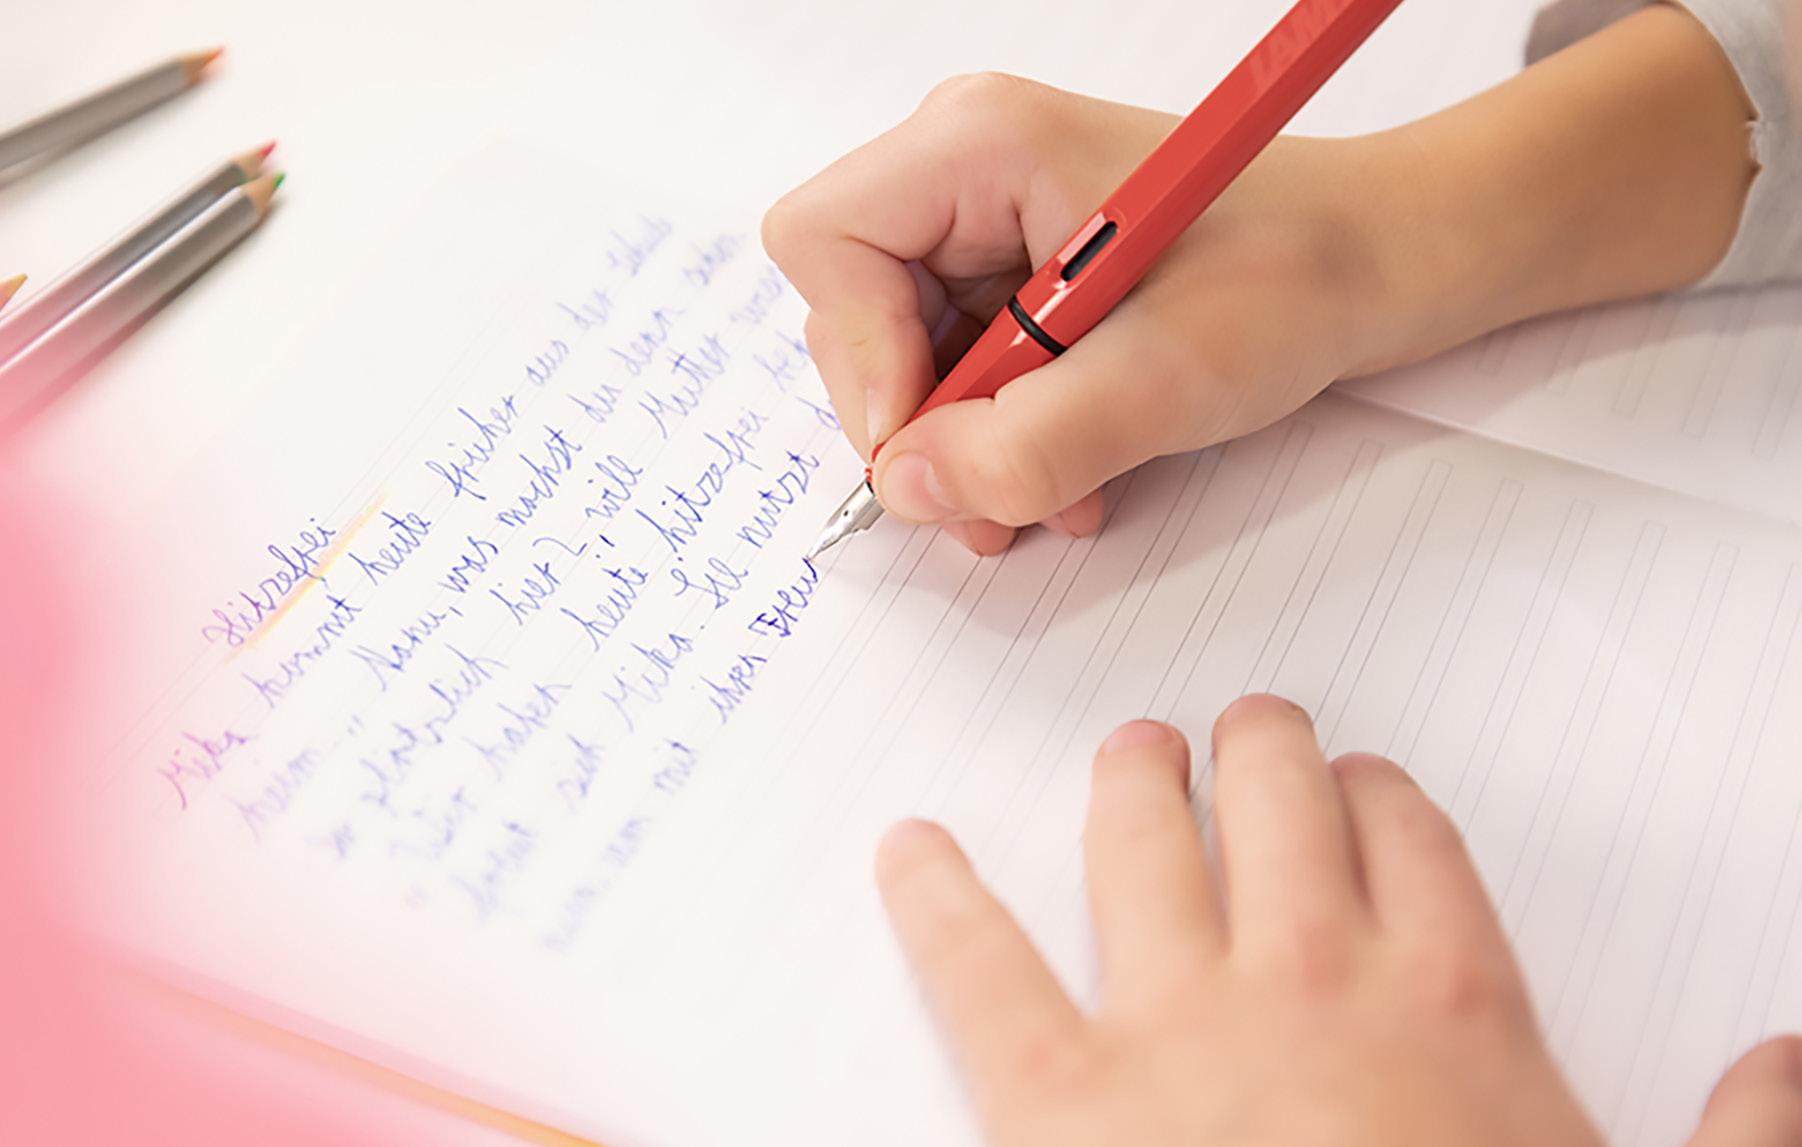 Hitzefrei
Mika kommt heute früher aus der Schule
heim. " Nanu, was machst du denn schon
so plötzlich hier? ", will Mutter
" Wir haben heute hitzefrei
freut sich Mika. Sie nutzt
nun, um mit ihren Freun
LAMY